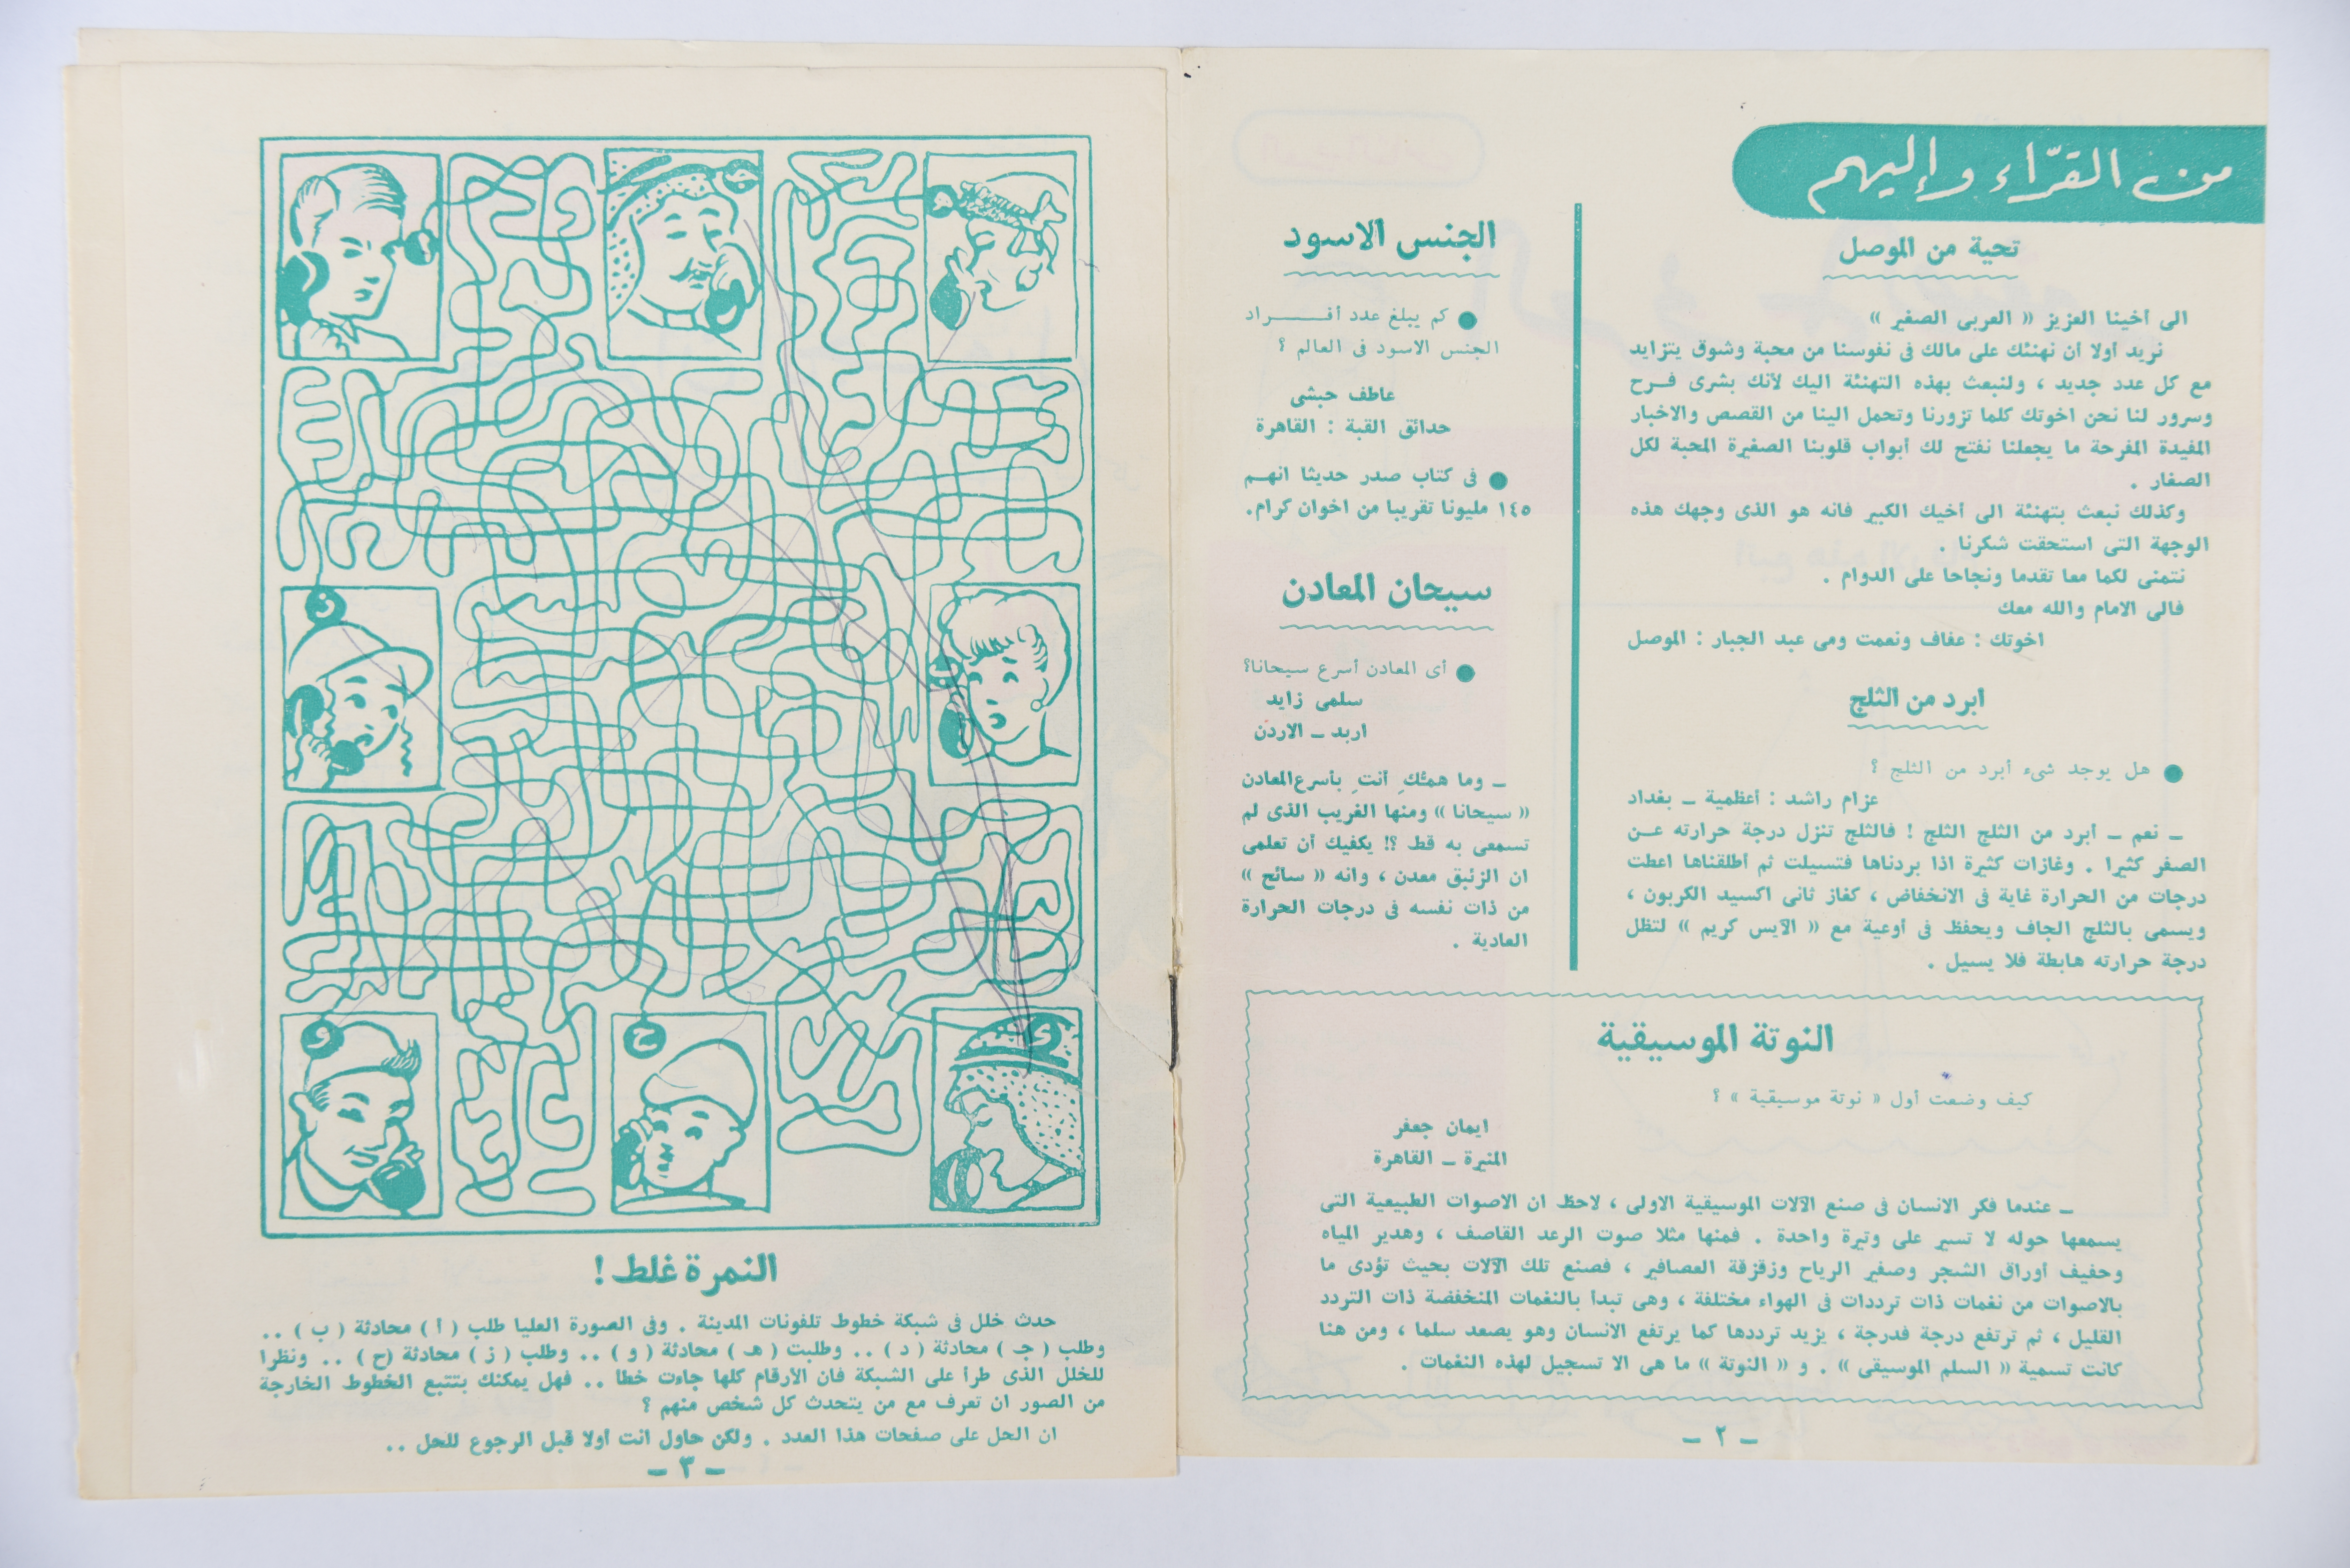 من القرّاء وإليهم
تحية من الموصل
الى أخينا العزيز « العربى الصغير »
نريد أولا أن نهنئك على مالك فى نفوسنا من محبة وشوق يتزايد
مع كل عدد جديد ، ولنبعث بهذه التهنئة اليك لأنك بشرى فــرح
وسرور لنا نحن اخوتك كلما تزورنا وتحمل الينا من القصص والاخبار
المفيدة المفرحة ما يجعلنا نفتح لك أبواب قلوبنا الصغيرة المحبة لكل
الصغار .
وكذلك نبعث بتهنئة الى أخيك الكبير فانه هو الذى وجهك هذه
الوجهة التى استحقت شكرنا .
نتمنى لكما معا تقدما ونجاحا على الدوام .
فالى الامام والله معك
اخوتك : عفاف ونعمت ومى عبد الجبار : الموصل
ابرد من الثلج
● هل يوجد شىء أبرد من الثلج ؟
عزام راشد : أعظمية ــ بغداد
ــ نعم ــ أبرد من الثلج الثلج ! فالثلج تنزل درجة حرارته عــن
الصفر كثيرا . وغازات كثيرة اذا بردناها فتسيلت ثم أطلقناها اعطت
درجات من الحرارة غاية فى الانخفاض ، كغاز ثانى اكسيد الكربون ،
ويسمى بالثلج الجاف ويحفظ فى أوعية مع « الآيس كريم » لتظل
درجة حرارته هابطة فلا يسيل .
الجنس الاسود
● كم يبلغ عدد أفــــراد
الجنس الاسود فى العالم ؟
عاطف حبشى
حدائق القبة : القاهرة
● فى كتاب صدر حديثا انهــم
١٤٥ مليونا تقريبا من اخوان كرام.
سيحان المعادن
● أى المعادن أسرع سيحانا؟
سلمى زايد
اربد ــ الاردن
ــ وما همكِ أنتِ بأسرع المعادن
« سيحانا » ومنها الغريب الذى لم
تسمعى به قط ؟! يكفيك أن تعلمى
ان الزئبق معدن ، وانه « سائح »
من ذات نفسه فى درجات الحرارة
العادية .
النوتة الموسيقية
كيف وضعت أول « نوتة موسيقية » ؟
ايمان جعفر
المنيرة ــ القاهرة
ــ عندما فكر الانسان فى صنع الآلات الموسيقية الاولى ، لاحظ ان الاصوات الطبيعية التى
يسمعها حوله لا تسير على وتيرة واحدة . فمنها مثلا صوت الرعد القاصف ، وهدير المياه
وحفيف أوراق الشجر وصفير الرياح وزقزقة العصافير ، فصنع تلك الآلات بحيث تؤدى ما
بالاصوات من نغمات ذات ترددات فى الهواء مختلفة ، وهى تبدأ بالنغمات المنخفضة ذات التردد
القليل ، ثم ترتفع درجة فدرجة ، يزيد ترددها كما يرتفع الانسان وهو يصعد سلما ، ومن هنا
كانت تسمية « السلم الموسيقى » . و « النوتة » ما هى الا تسجيل لهذه النغمات .
ــ ٢ ــ
ز
و
ح
النمرة غلط !
حدث خلل فى شبكة خطوط تلفونات المدينة . وفى الصورة العليا طلب ( أ ) محادثة ( ب ) ..
وطلب ( جـ ) محادثة ( د ) .. وطلبت ( هـ ) محادثة ( و ) .. وطلب ( ز ) محادثة (ح ) .. ونظرا
للخلل الذى طرأ على الشبكة فان الأرقام كلها جاءت خطا .. فهل يمكنك بتتبع الخطوط الخارجة
من الصور ان تعرف مع من يتحدث كل شخص منهم ؟
ان الحل على صفحات هذا العدد . ولكن حاول انت أولا قبل الرجوع للحل ..
ــ ٣ ــ